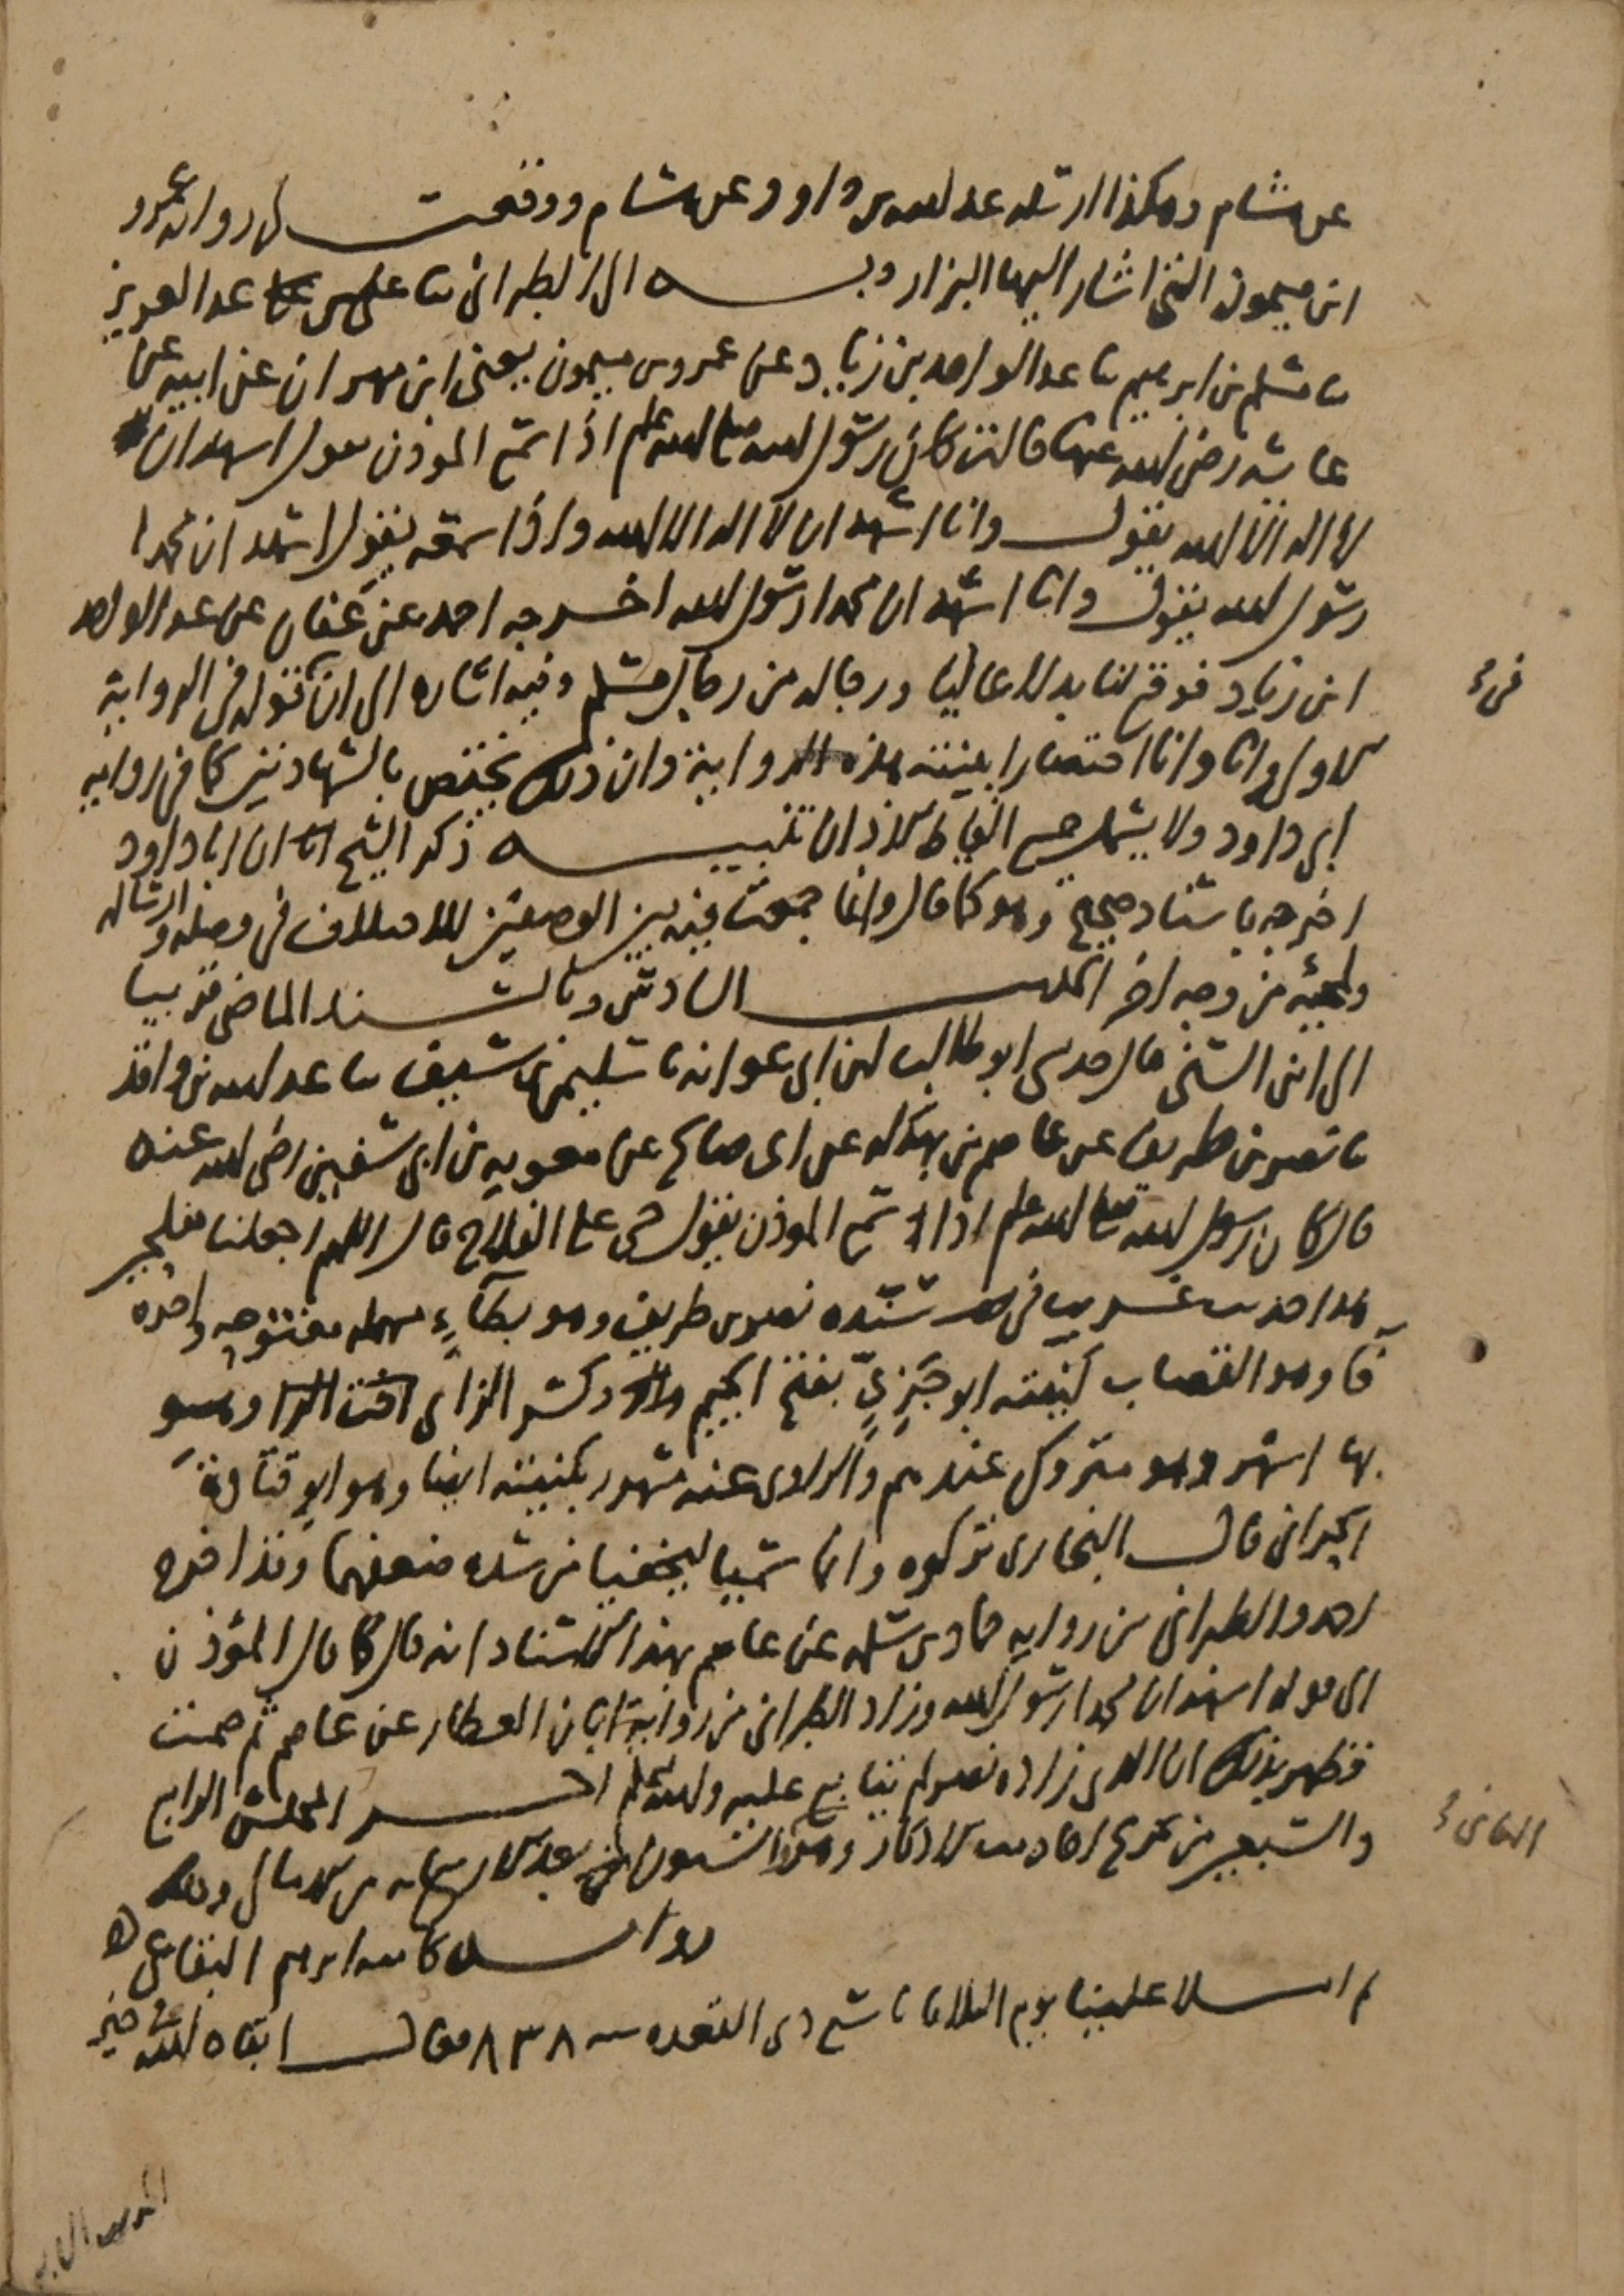 عن هشام وهكذا ارسله عبد الله بن داوود عن هشام ووقعت لى رواية عمرو
ابن ميمون التى اشار اليها البزار وبه الى الطبرانى ثنا على بن عبد العزيز
ثنا مسلم بن ابرهيم ثنا عبد الواحد بن زياد عن عمرو بن ميمون يعنى ابن مهران عن ابيه عن
عايشه رضى الله عنها قالت كان رسول الله صلى الله عليه وسلم اذا سمع الموذن يقول اشهد ان
لا اله الا الله يقول وانا اشهد ان لا اله الا الله واذا سمعه يقول اشهد ان محمدا
رسول الله يقول وانا اشهد ان محمدا رسول الله اخرجه احمد عن عفان عن عبد الواحد
ابن زياد فوقع لنا بدلا عاليا ورجاله من رجال مسلم وفيه اشاره الى ان قوله فى الرواية
الاولى وانا وانا اختصارا بينته هذه الرواية وان ذلك يختص بالشهادتين كما فى رواية
ابى داود ولا يشمل جميع الفاظ الاذان تنبيه ذكر الشيخ ان ابا داود
اخرجه باسناد صحيح وهو كما قال وانما جمعت فيه بين الوصفين للاختلاف فى وصله وارساله
ولمجيئه من وجه اخر الحديث السادس وبالسند الماضى قريبا
الى ابن السنى قال حدثنى ابو طالب بن ابى عوانه ثنا سليمن بن سيف ثنا عبد الله بن واقد
ثنا نصر بن طريف عن عاصم بن بهدله عن ابى صالح عن معويه بن ابى سفين رضى الله عنه
قال كان رسول الله صلى الله عليه وسلم اذا سمع الموذن يقول حى على الفلاح قال اللهم اجعلنا مفلحين
هذا حديث غريب فى سنده نصر بن طريف وهو بطآءٍ مهمله مفتوحه واخره
فا وهو القصاب كنيته ابو جَزِيّ بفتح الجيم وكسر الزاى وهو
بها اشهر وهو متروك عندهم والراوى عنه مشهور بكنيته ايضا وهو ابو قتادة
الحرانى قال البخارى تركوه وانما سميا ليخفيا من شده ضعفهما وقد اخرج
احمد والطبرانى من رواية حماد بن سلمه عن عاصم بهذا الاسناد انه قال كما قال المؤذن
الى قوله اشهد ان محمدا رسول الله وزاد الطبرانى من رواية ابان العطار عن عاصم ثم صمت
فظهر بذلك ان الذى زاده نصر لم يتابع عليه والله اعلم اخر المجلس الرابع
والسبعين من تخريج احاديث الاذكار وهو بعد الاربعمايه من الامالى وذلك
رواية كاتبه ابرهيم البقاعى
ثم املا علينا يوم الثلاثا تاسع ذى القعده سنه ٨٣٨ فقال ابقاه الله فى خير